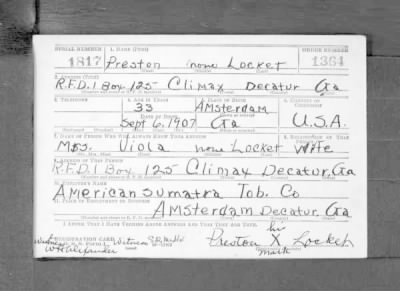 SERIAL NUMBER 1. NAME (Print) ORDER NUMBER
1817 Preston none Locket 1364
2. ADDRESS (Print)
R.F.D. 1 Box 125 Climax Decatur Ga
3. TELEPHONE 4. AGE IN YEARS 5. PLACE OF BIRTH 6. COUNTRY OF CITIZENSHIP
33 Amsterdam
DATE OF BIRTH
Sept 1907 Ga U.S.A.
7. NAME OF PERSON WHO WILL ALWAYS KNOW YOUR ADDRESS 8. RELATIONSHIP OF THAT PERSON
Mrs. Viola none Locket Wife
9. ADDRESS OF THAT PERSON
R.F.D. 1 Box 125 Climax Decatur, Ga
10. EMPLOYER'S NAME
American Sumatra Tob. Co
11. PLACE OF EMPLOYMENT OR BUSINESS
Amsterdam Decatur, Ga
I AFFIRM THAT I HAVE VERIFIED ABOVE ANSWERS AND THAT THEY ARE TRUE.
his
Preston X Locket
mark
REGISTRATION CARD
Witness
W H Alexander
Witness